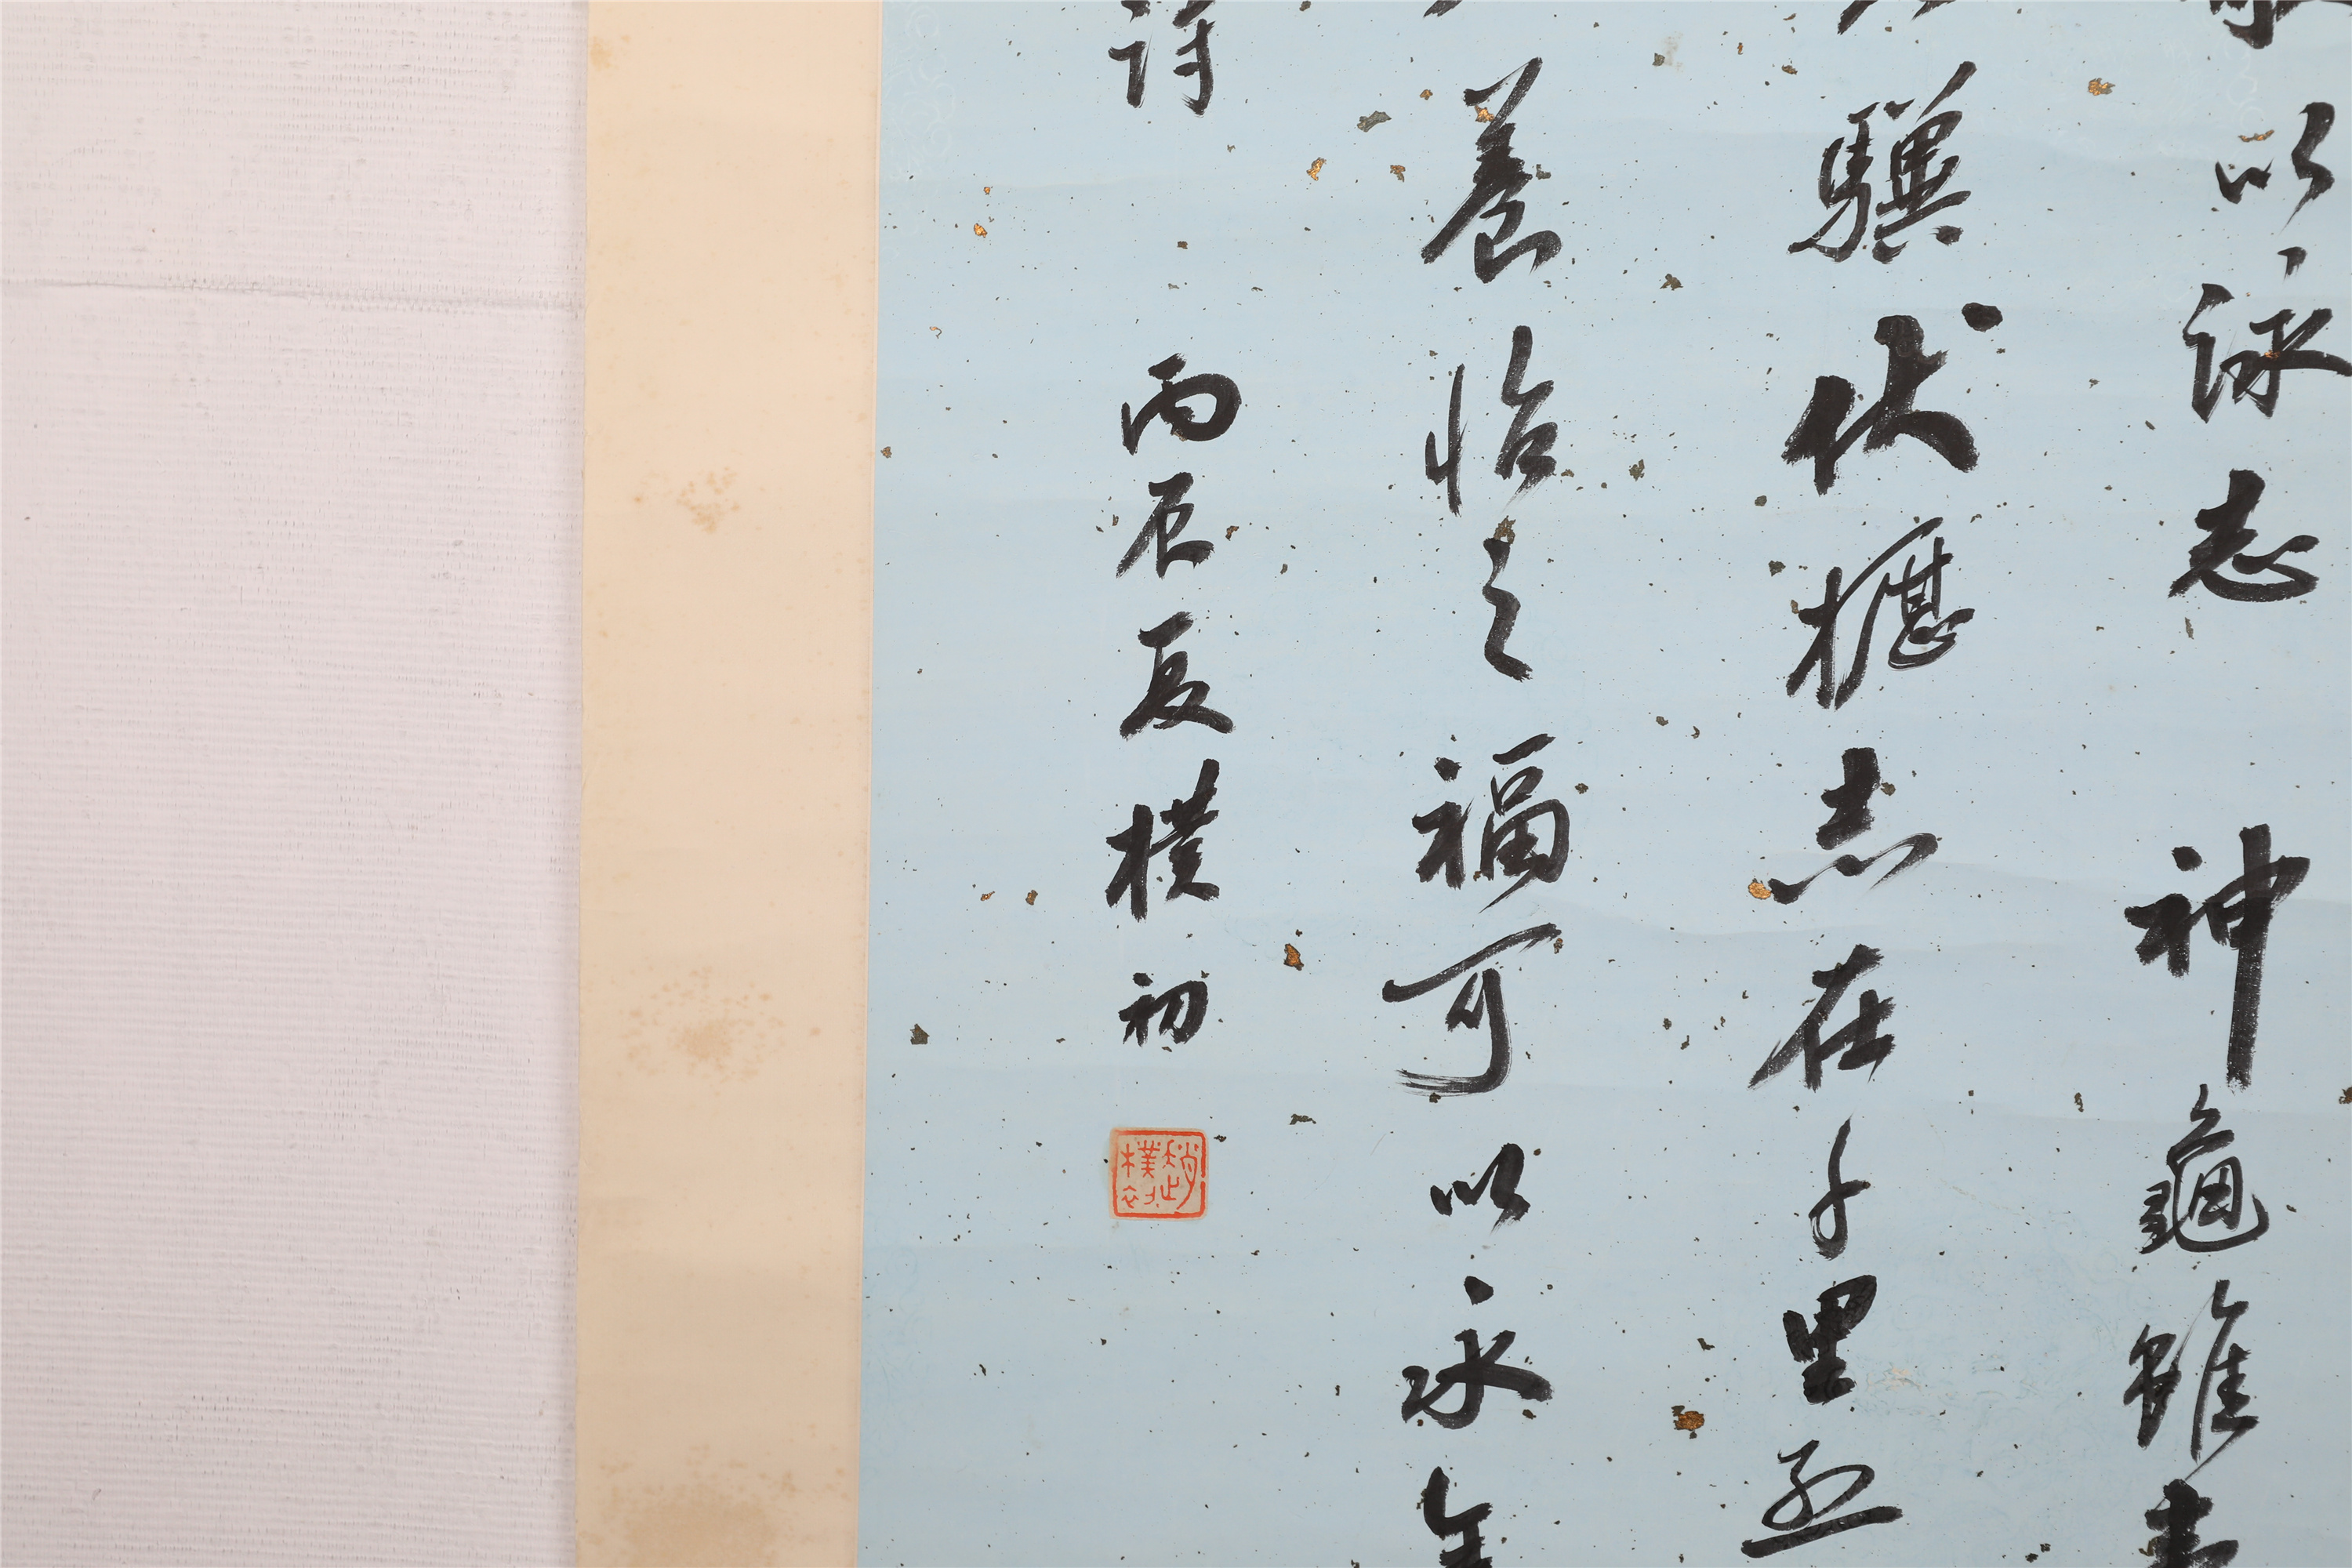 以詠志 神龜雖壽
驥伏櫪志在千里烈
養怡之福可以永年
詩 丙辰夏樸初
趙樸初